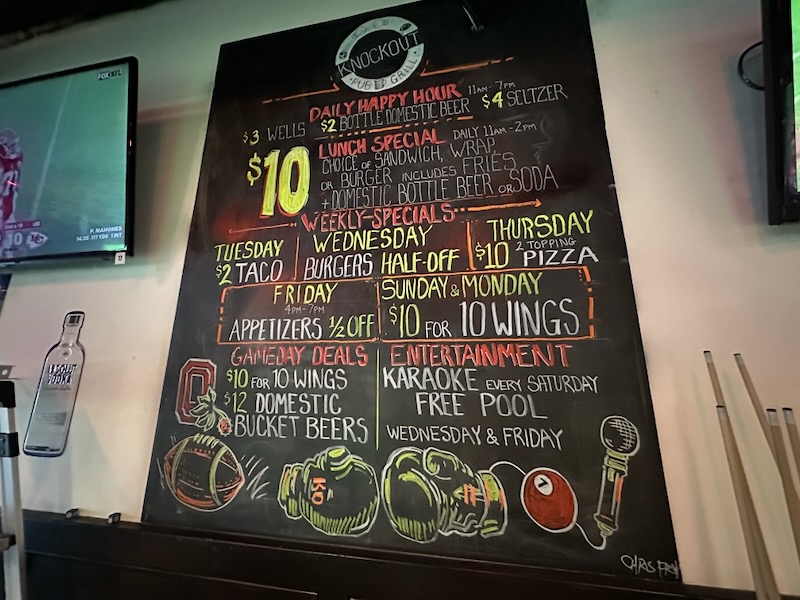 FOX NFL
P. MAHOMES
14/25 117 YDS 1 INT
10
ABSOLUT
VODKA
KNOCKOUT
PUB GRILL
DAILY HAPPY HOUR 11AM-7PM
$3 WELLS $2 BOTTLE DOMESTIC BEER $4 SELTZER
$10
LUNCH SPECIAL DAILY 11AM-2PM
CHOICE OF SANDWICH, WRAP
OR BURGER INCLUDES FRIES
+ DOMESTIC BOTTLE BEER OR SODA
WEEKLY-SPECIALS
TUESDAY
$2 TACO
WEDNESDAY
BURGERS HALF-OFF
THURSDAY
$10 2 TOPPING PIZZA
FRIDAY
4PM-7PM
APPETIZERS 1/2 OFF
SUNDAY & MONDAY
$10 FOR 10 WINGS
GAMEDAY DEALS
$10 FOR 10 WINGS
$12 DOMESTIC
BUCKET BEERS
ENTERTAINMENT
KARAOKE EVERY SATURDAY
FREE POOL
WEDNESDAY & FRIDAY
KO
7
CHRIS